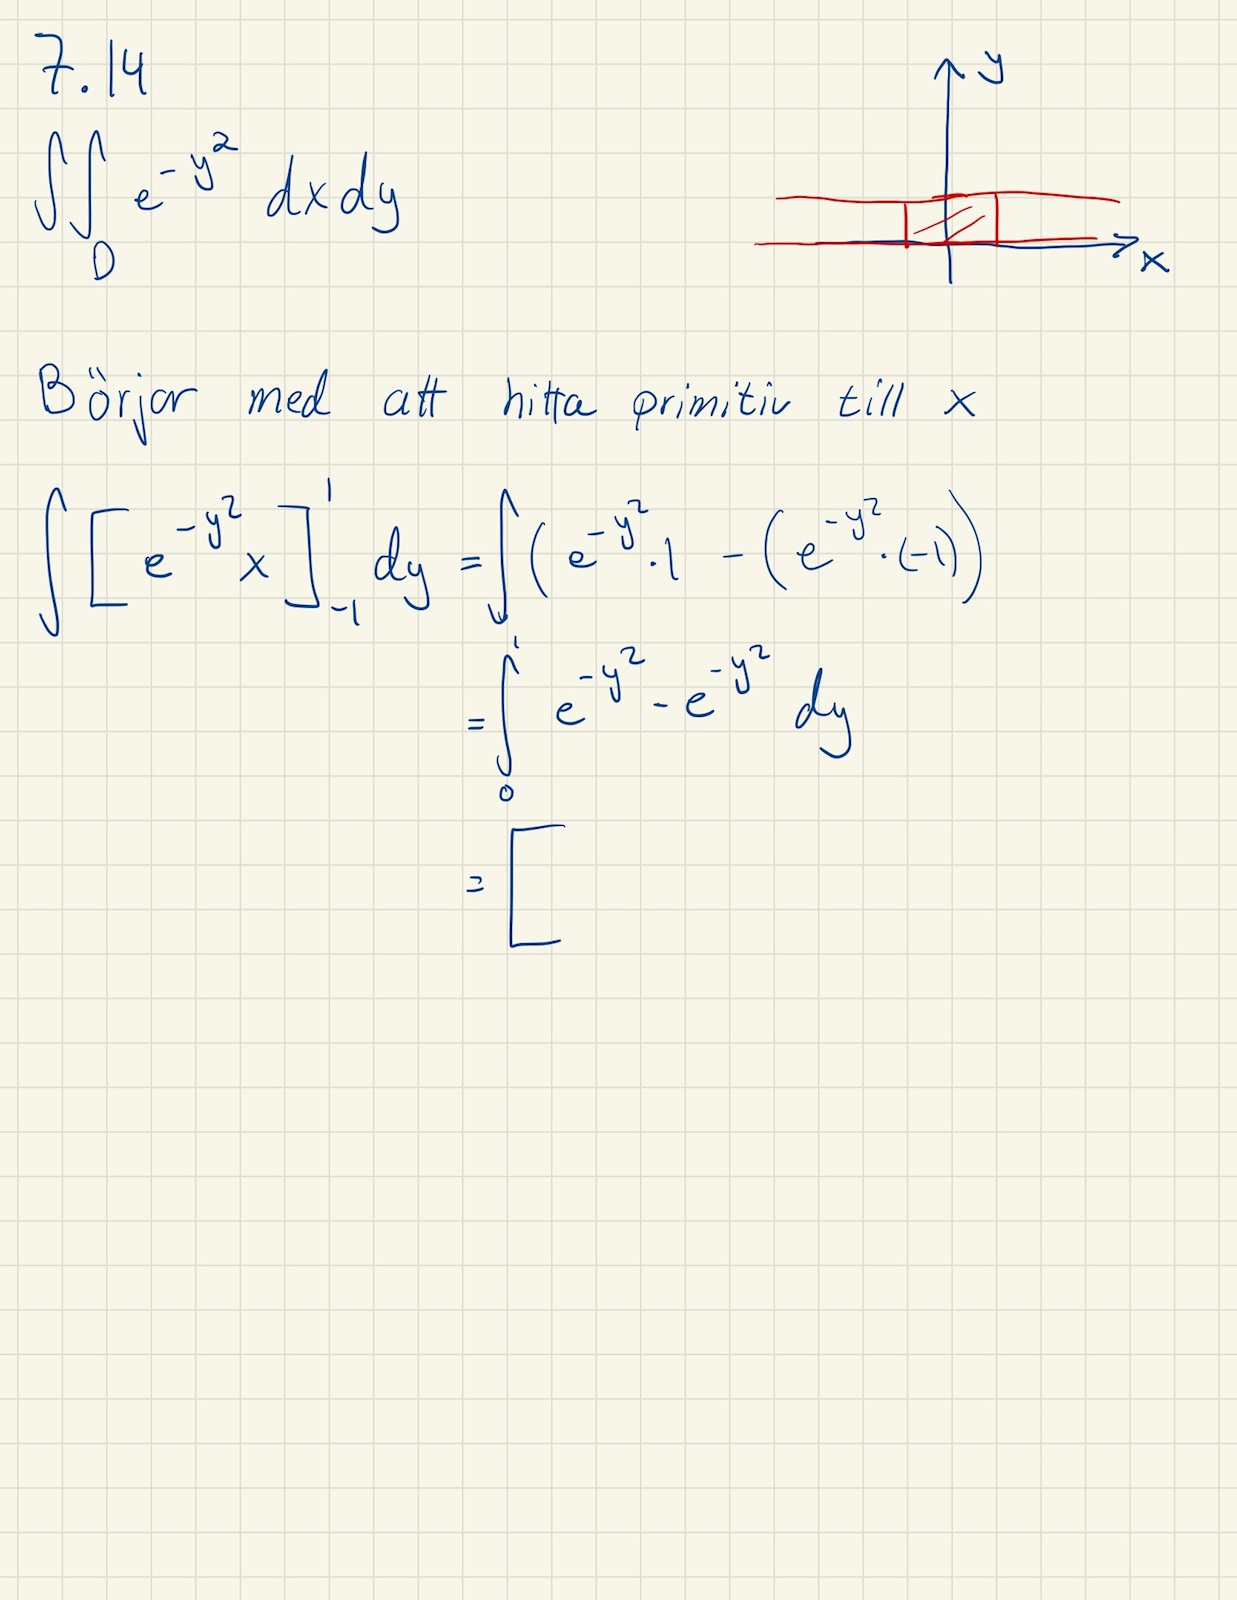 7.14
y
∫∫_D e^{-y^2} dxdy
x
Börjar med att hitta primitiv till x
∫ [e^{-y^2} x]_{-1}^{1} dy = ∫ (e^{-y^2} · 1 - (e^{-y^2} · (-1)))
= ∫_0^1 e^{-y^2} - e^{-y^2} dy
= [